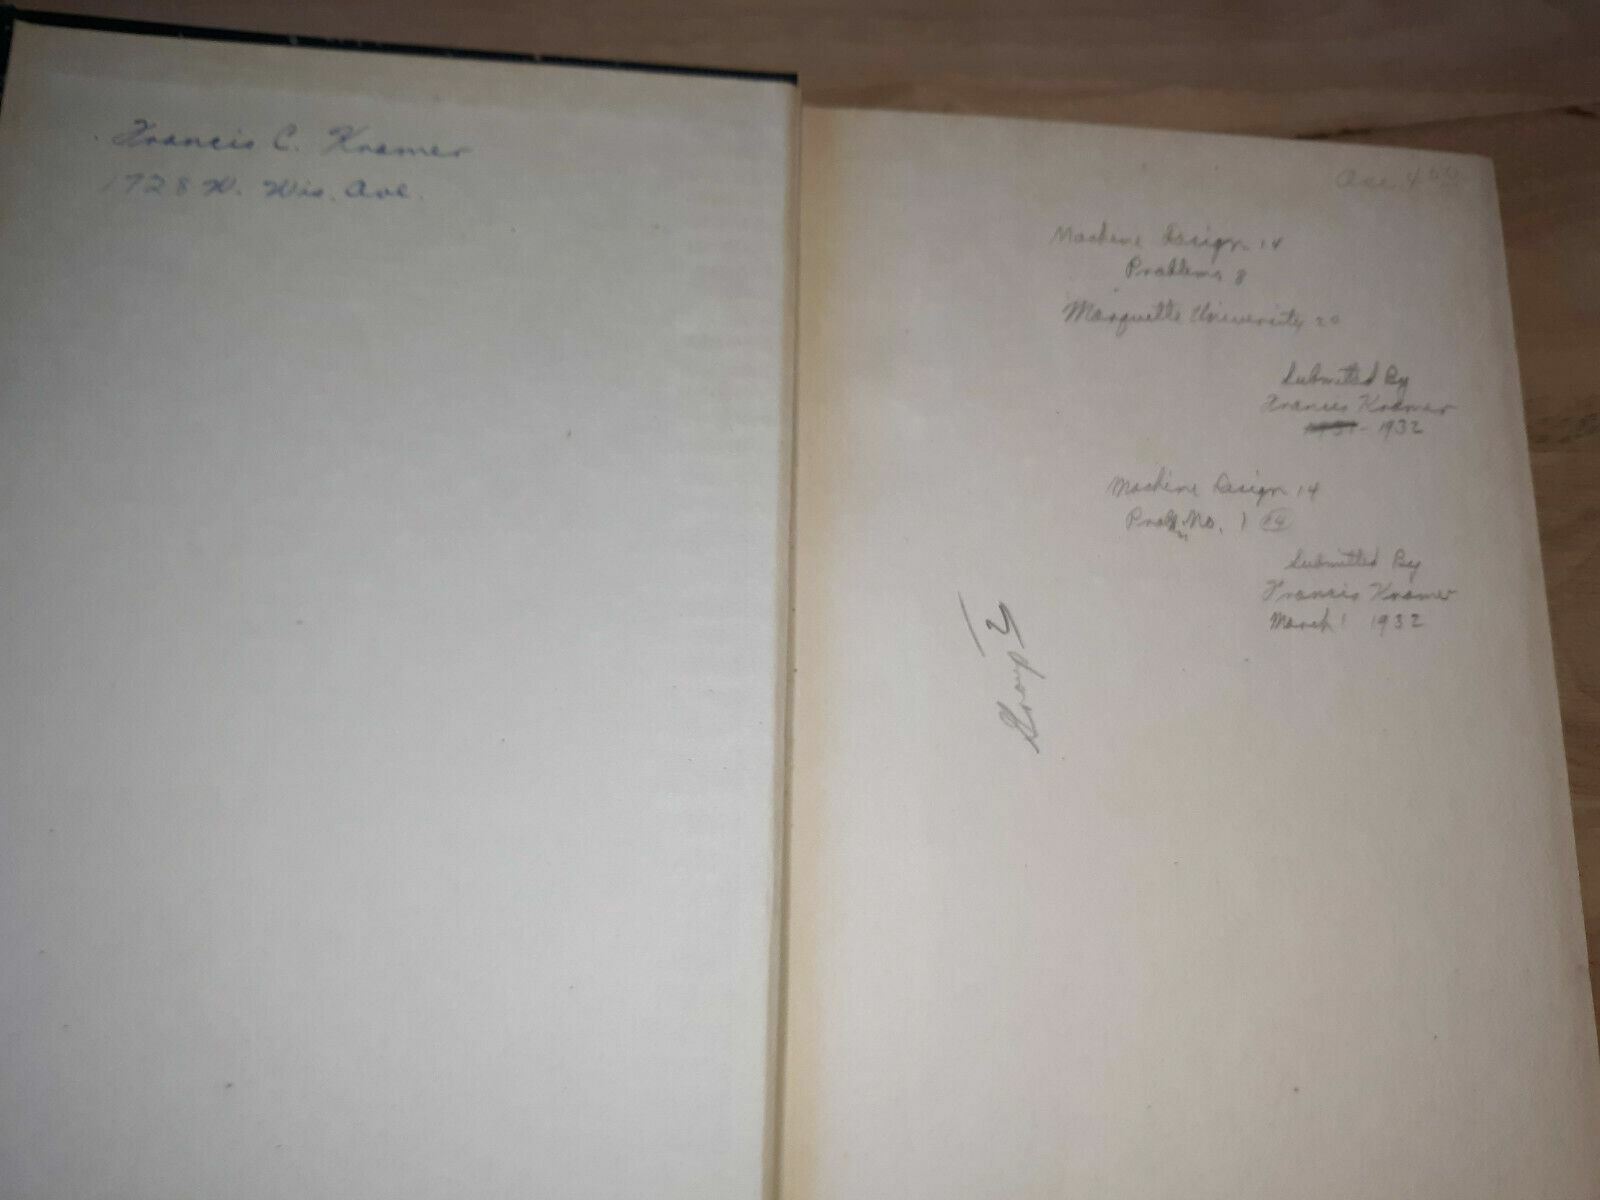 Francis C. Kramer
1728 W. Wis. Ave.
Machine Design 14
Problems 8
Marquette University 20
Submitted By
Francis Kramer
1931 - 1932
Machine Design 14
No. 1
Submitted By
Francis Kramer
March 1 1932
Group